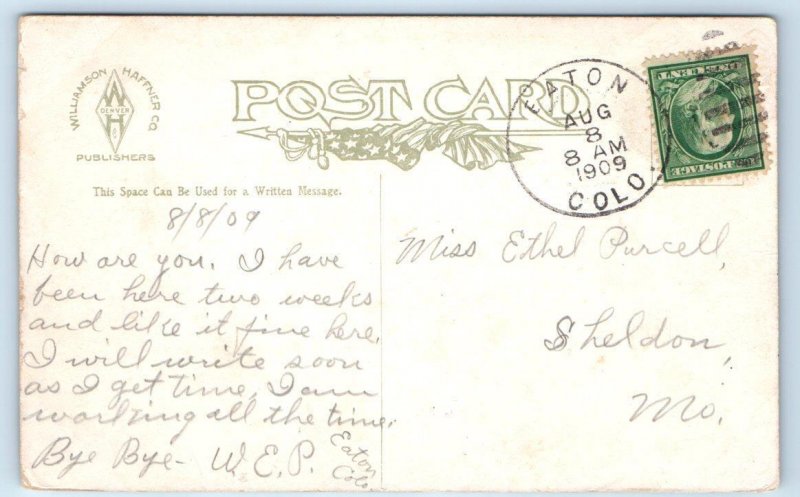 WILLIAMSON HAFFNER CO.
W
DENVER
H
&
PUBLISHERS
POST CARD
EATON
AUG
8
8 AM
1909
COLO.
This Space Can Be Used for a Written Message.
8/8/09
How are you. I have
been here two weeks
and like it fine here.
I will write soon
as I get time, I am
working all the time.
Bye Bye - W.E.P.
Eaton
Colo
Miss Ethel Purcell,
Sheldon,
Mo.